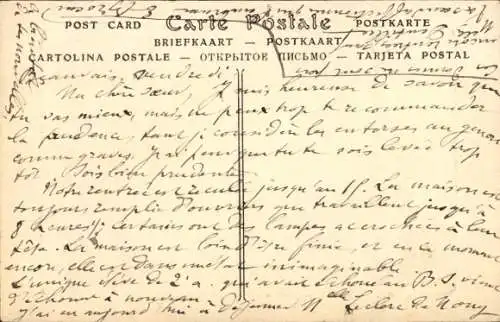 POST CARD Carte Postale POSTKARTE
BRIEFKAART — POSTKAART
CARTOLINA POSTALE — ОТКРЫТОЕ ПИСЬМО — TARJETA POSTAL
Beauvais. Vendredi
Ma chère sœur, je suis heureuse de savoir que
tu vas mieux, mais ne peux trop te recommander
la prudence, tant je considère les entorses au genou
comme graves. J'ai peur que tu te sois levée trop
tôt. Sois bien prudente.
Notre rentrée est reculée jusqu'au 15. La maison est
toujours remplie d'ouvriers qui travaillent jusqu'à
8 heures; certains ont des lampes accrochées à leur
tête. La maison est loin d'être finie, et en ce moment
encore, elle est dans un état inimaginable.
L'unique élève de 2e a. qui avait échoué au B.S. vient
d'échouer à nouveau.
J'ai eu aujourd'hui à déjeuner Mlle Leclerc de Nouy